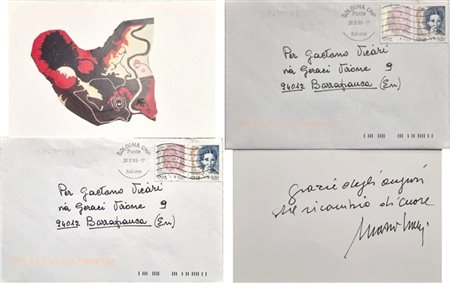 BOLOGNA CMP
Poste
20.12.04-17
Italiane
Per Gaetano Vicari
via Geraci Vaone 9
94012 Barrafranca (En)
BOLOGNA CMP
Poste
20.12.04-17
Italiane
Per Gaetano Vicari
via Geraci Vaone 9
94012 Barrafranca (En)
grazie degli auguri
che ricambio di cuore